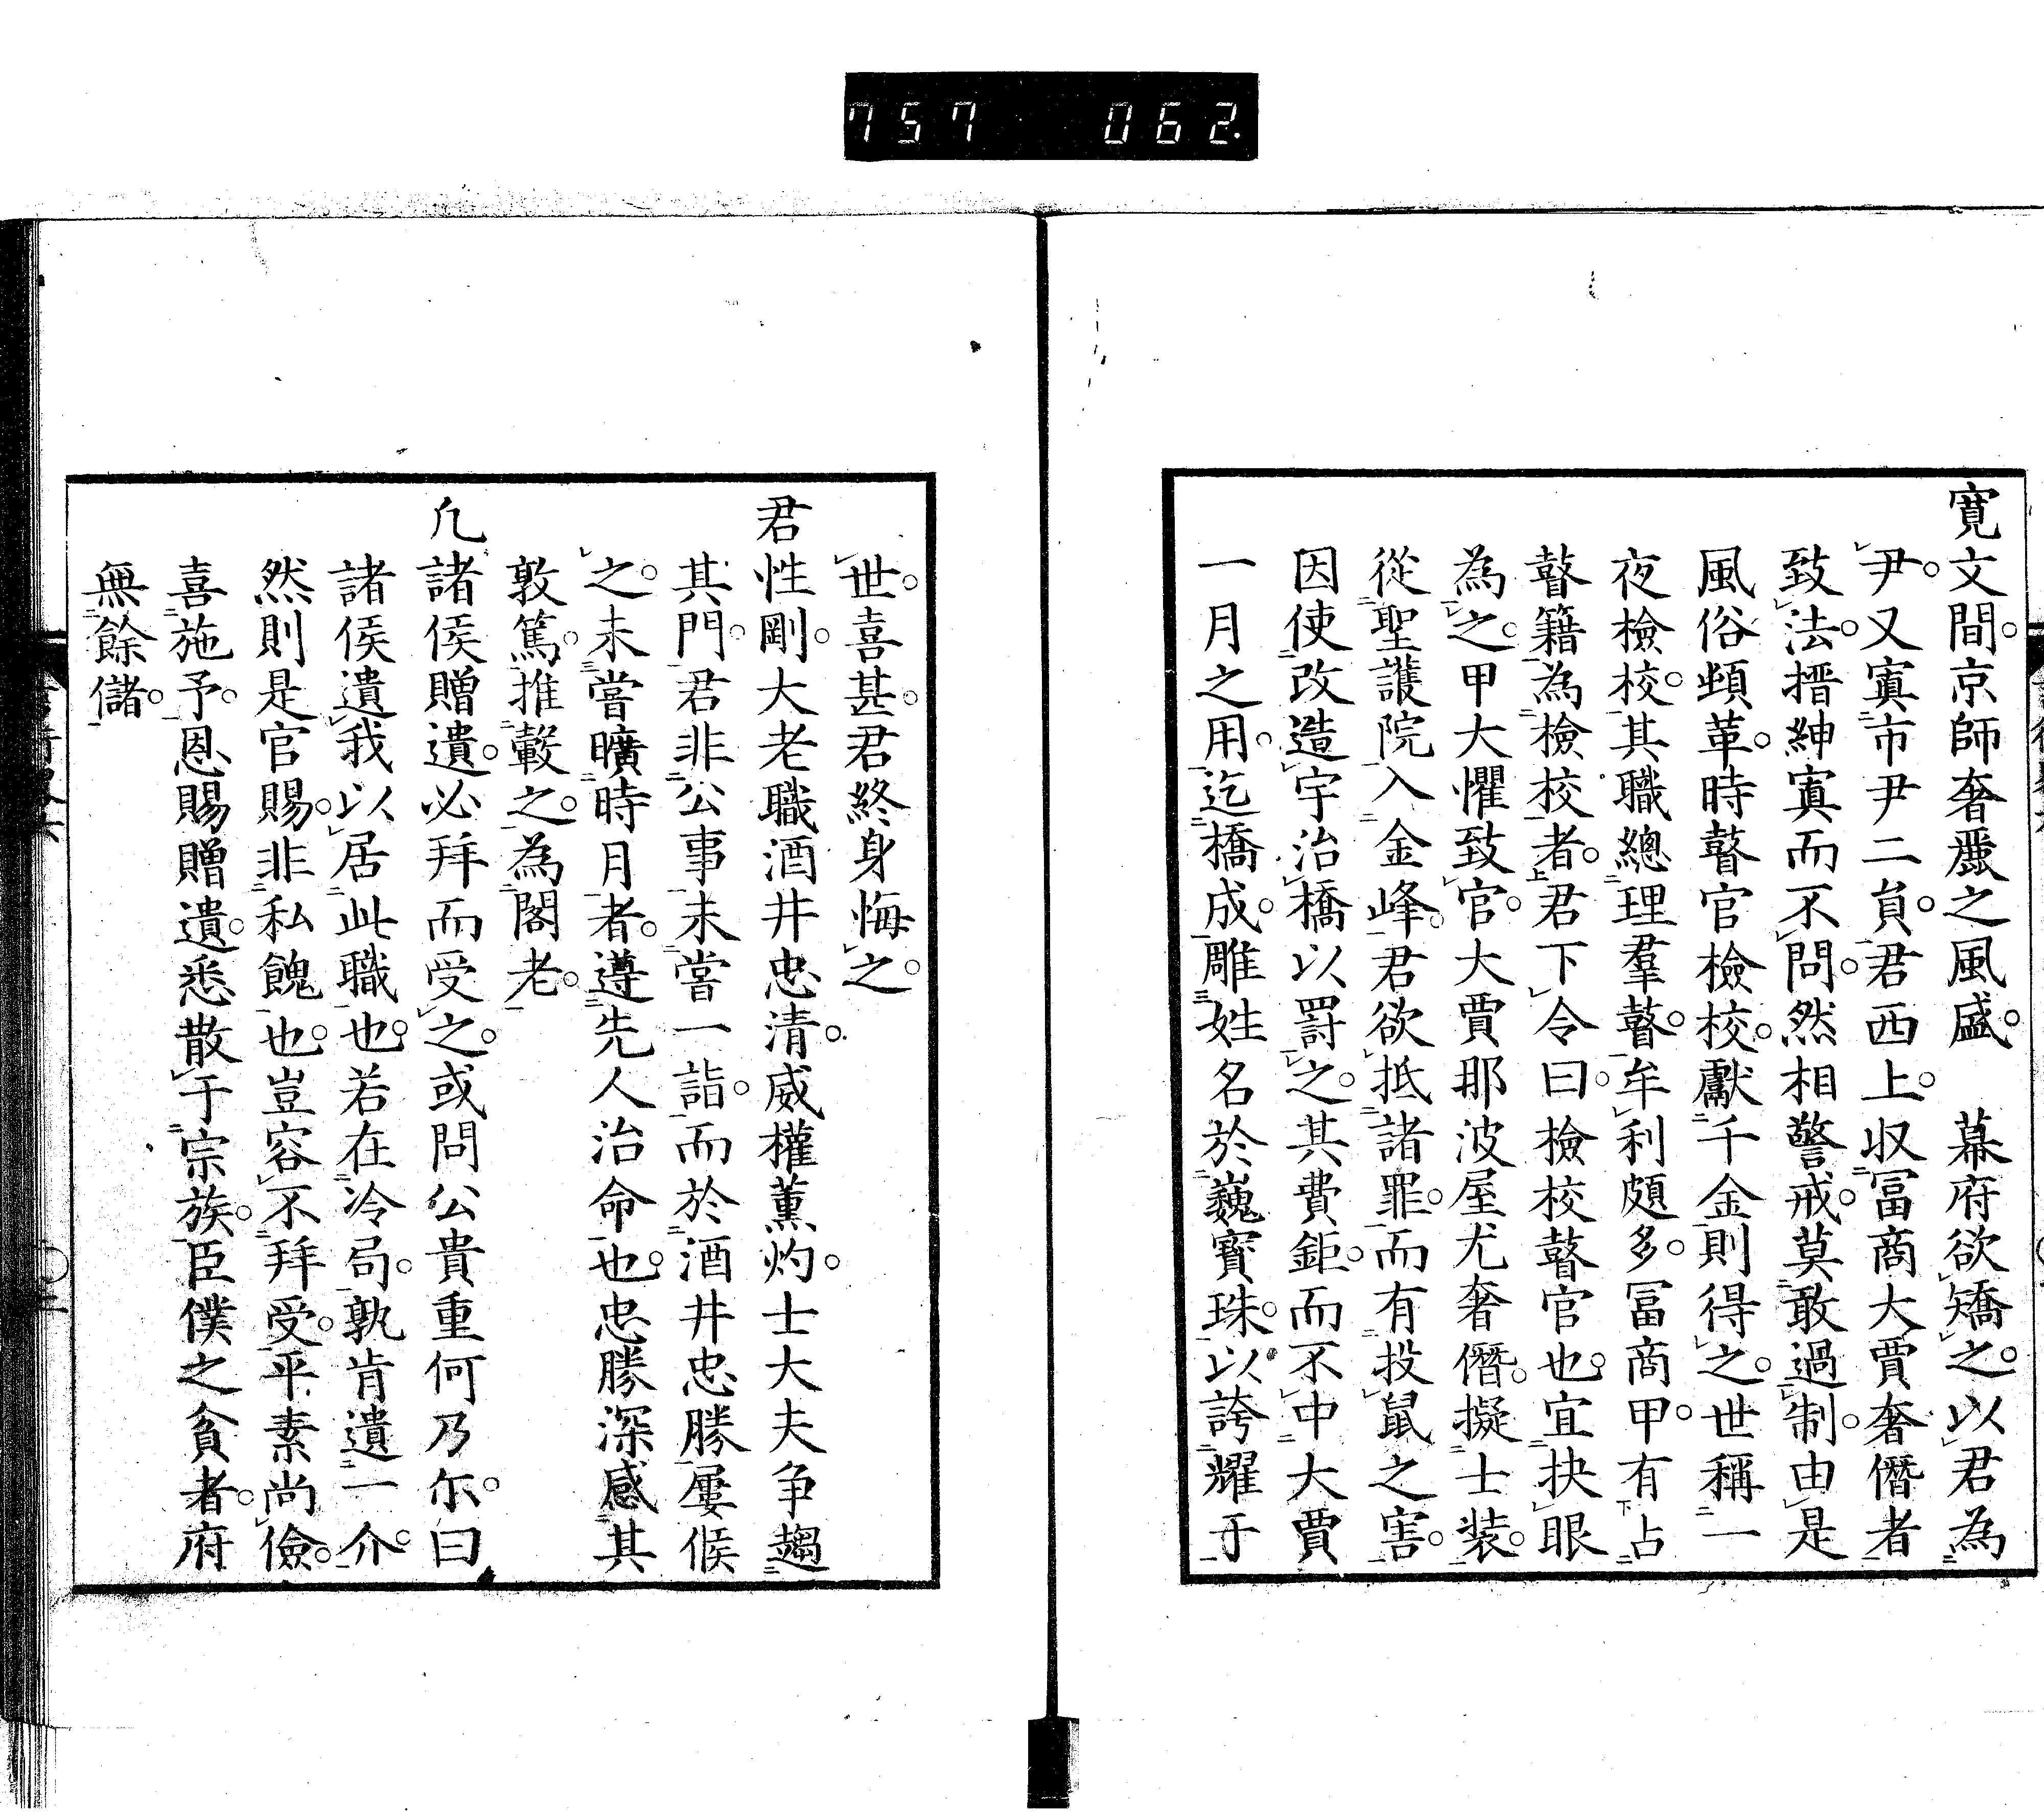 757 062.
寛文間。京師奢麗之風盛。　幕府欲矯之。以君為
尹。又寘市尹二員。君西上。収冨商大賈奢僭者
致法。搢紳寘而不問。然相警戒。莫敢過制。由是
風俗頻革。時瞽官檢校。獻千金則得之。世稱一
夜檢校。其職總理羣瞽。牟利頗多。冨商甲。有占
瞽籍為檢校者。君下令曰。檢校瞽官也。宜抉眼
為之。甲大懼致官。大賈那波屋尤奢僭。擬士装。
從聖護院入金峰。君欲抵諸罪。而有投鼠之害。
因使改造宇治橋以罸之。其費鉅。而不中大賈
一月之用。迄橋成。雕姓名於巍寳珠。以誇耀于
世。喜甚。君終身悔之。
君性剛。大老職酒井忠清。威權薫灼。士大夫争趨
其門。君非公事未嘗一詣。而於酒井忠勝屢候
之。未嘗曠時月者。遵先人治命也。忠勝深感其
敦篤。推轂之。為閣老。
凢諸侯贈遺。必拜而受之。或問公貴重何乃尓。曰
諸侯遺我以居此職也。若在冷局。孰肯遺一介。
然則是官賜。非私餽也。豈容不拜受。平素尚儉。
喜施予。恩賜贈遺。悉散于宗族。臣僕之貧者。府
無餘儲。